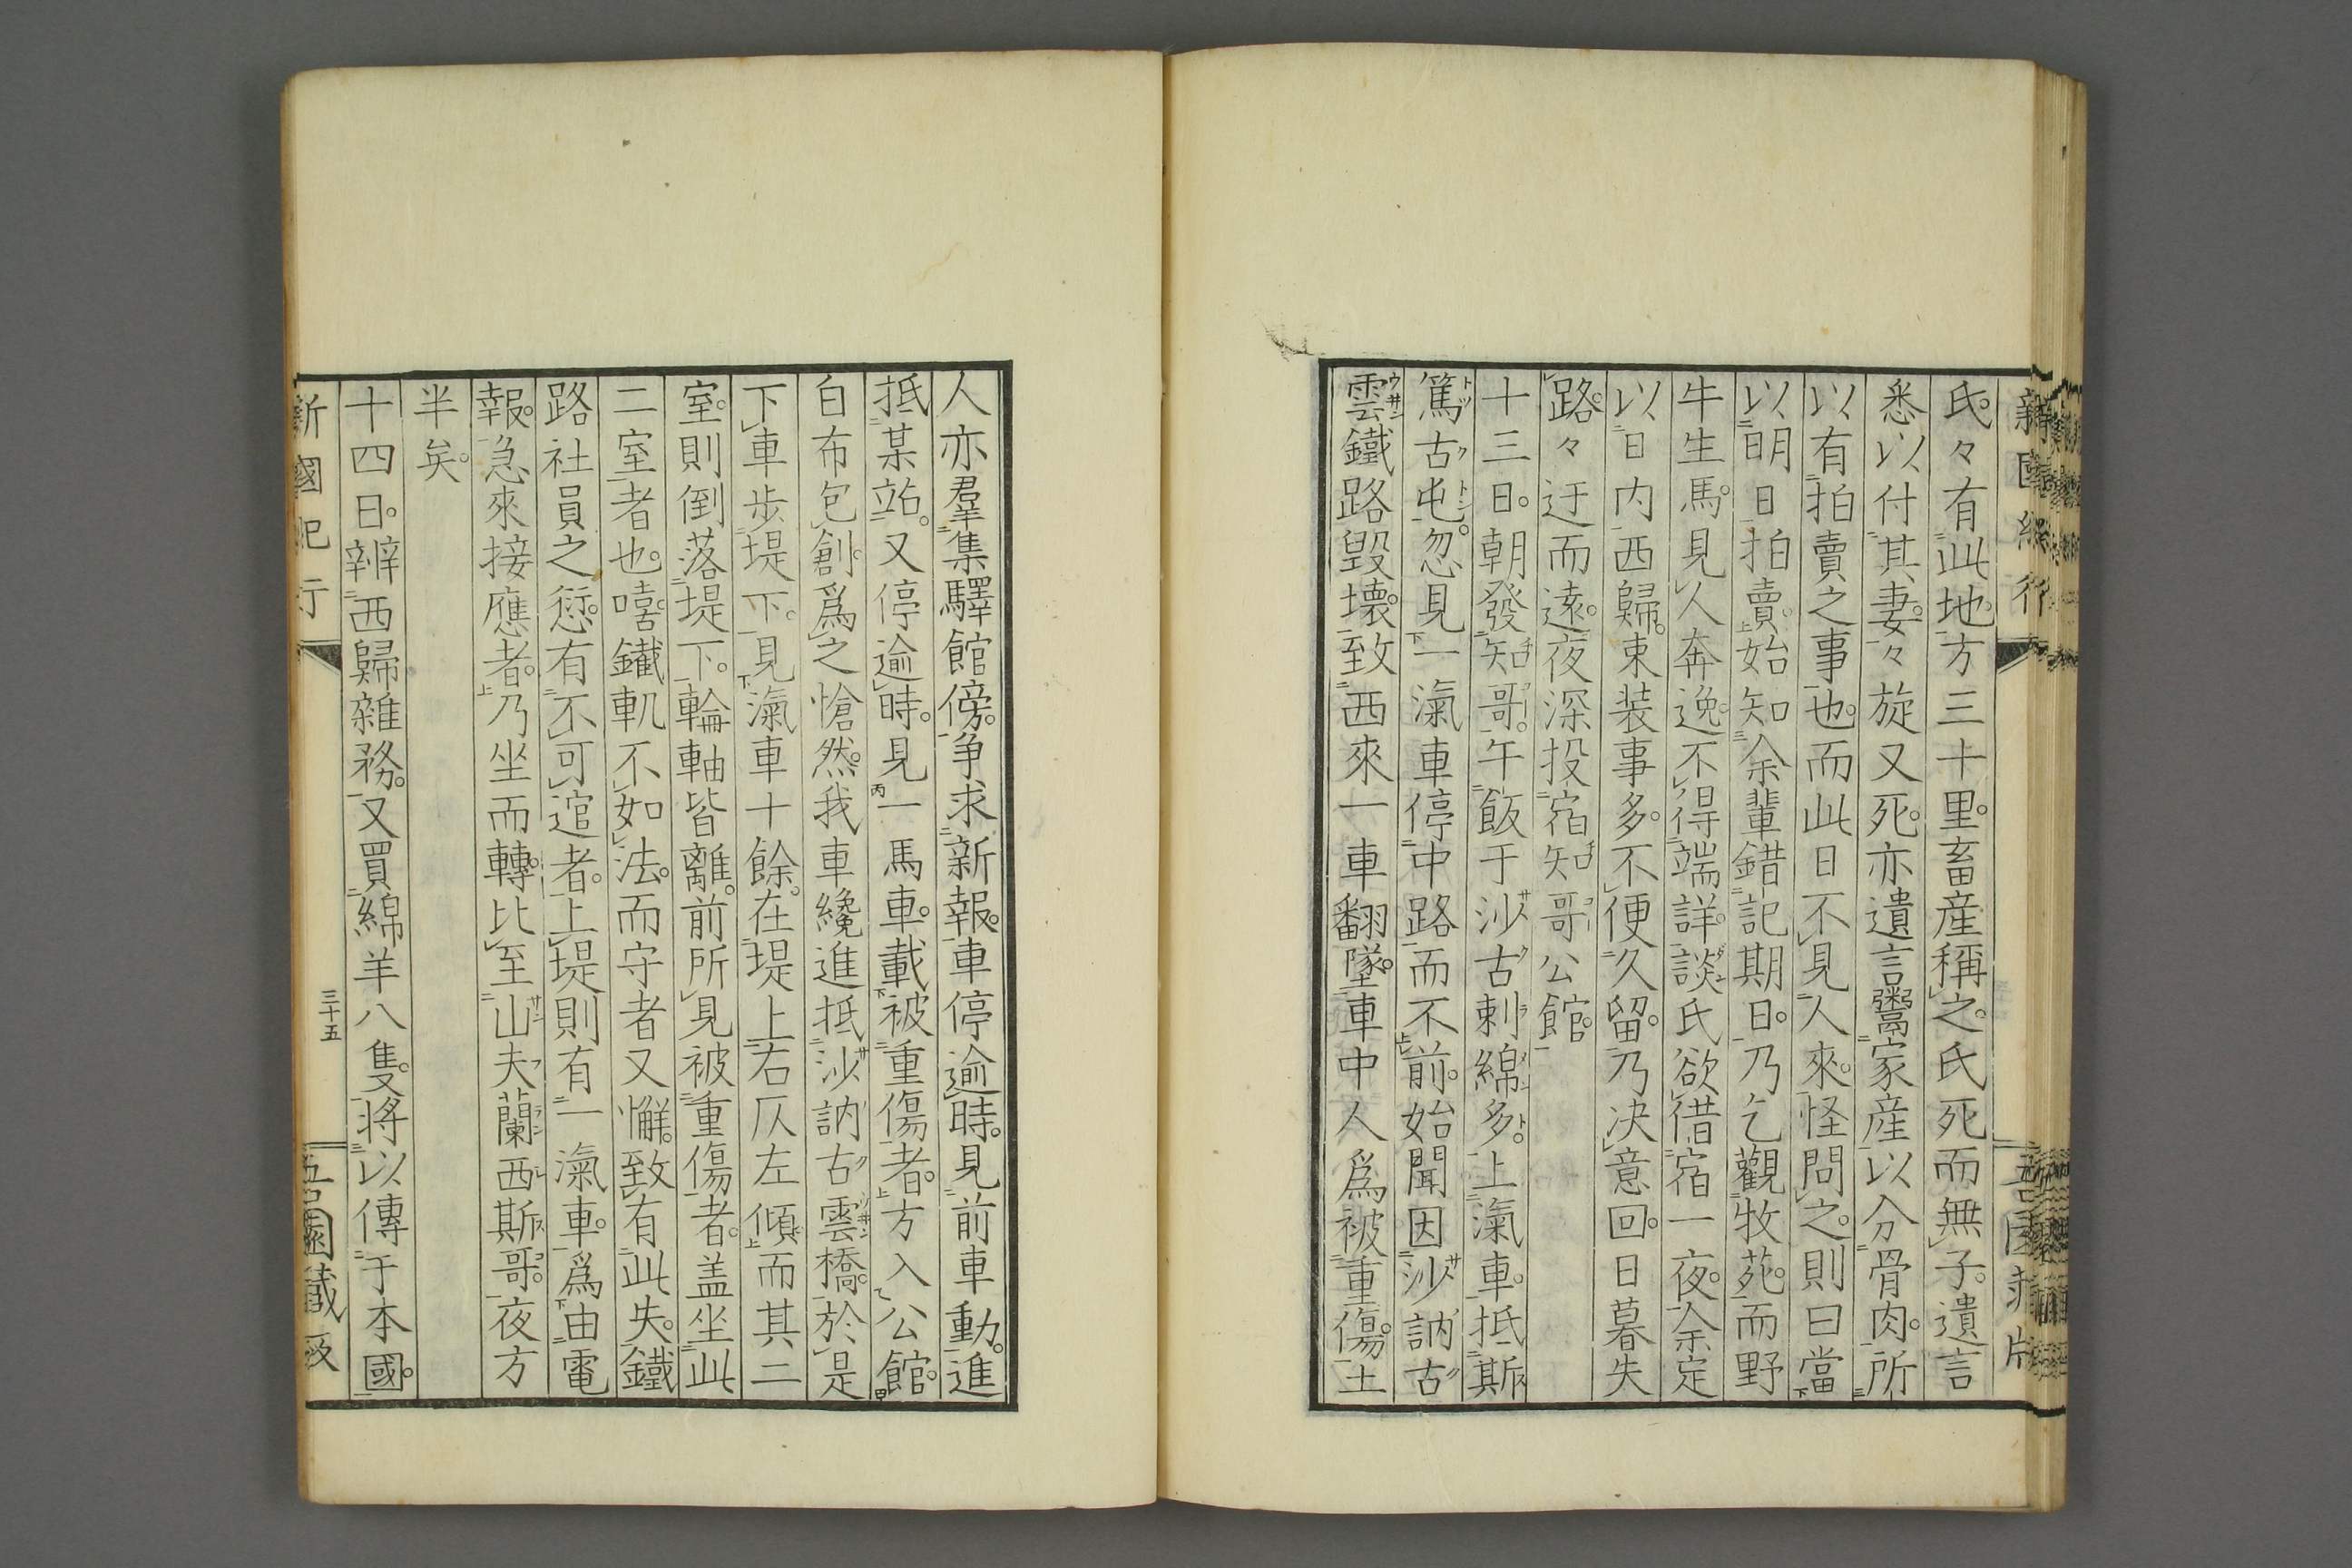 氏。々有此地方三十里。畜産稱之。氏死而無子。遺言
悉以付其妻。々旋又死。亦遺言鬻家産以分骨肉。所
以有拍賣之事也。而此日不見人來。怪問之。則曰當
以明日拍賣。始知余輩錯記期日。乃乞觀牧苑。而野
牛生馬。見人奔逸。不得端詳。談氏欲借宿一夜。余定
以日内西歸。束装事多。不便久留。乃决意回。日暮失
路。々迂而遠。夜深投宿知哥公館。
十三日。朝發知哥。午飯于沙古剌綿多。上滊車。抵斯
篤古屯。忽見一滊車停中路而不前。始聞因沙訥古
雲鐵路毀壞。致西來一車翻墜。車中人爲被重傷。土
人亦羣集驛館傍。争求新報。車停逾時。見前車動。進
抵某站。又停逾時。見一馬車。載被重傷者。方入公館。
白布包創。爲之愴然。我車纔進抵沙訥古雲橋。於是
下車步堤下。見滊車十餘。在堤上右仄左傾。而其二
室。則倒落堤下。輪軸皆離。前所見被重傷者。盖坐此
二室者也。嘻鐵軌不如法。而守者又懈。致有此失。鐵
路社員之愆。有不可逭者。上堤則有一滊車。爲由電
報。急來接應者。乃坐而轉。比至山夫蘭西斯哥。夜方
半矣。
十四日。辨西歸雜務。又買綿羊八隻。將以傳于本國。
新國紀行
三十五